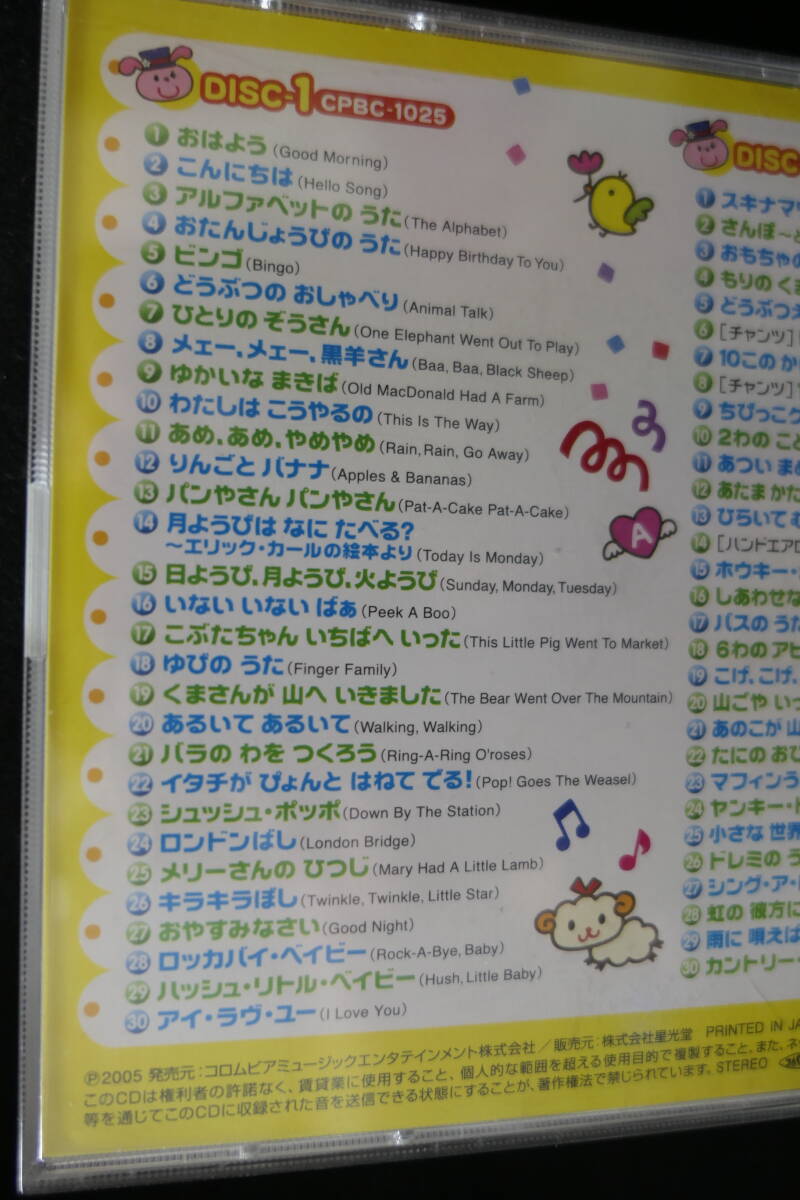 DISC-1 CPBC-1025
1 おはよう (Good Morning)
2 こんにちは (Hello Song)
3 アルファベットの うた (The Alphabet)
4 おたんじょうびの うた (Happy Birthday To You)
5 ビンゴ (Bingo)
6 どうぶつの おしゃべり (Animal Talk)
7 ひとりの ぞうさん (One Elephant Went Out To Play)
8 メェー,メェー,黒羊さん (Baa, Baa, Black Sheep)
9 ゆかいな まきば (Old MacDonald Had A Farm)
10 わたしは こうやるの (This Is The Way)
11 あめ,あめ,やめやめ (Rain, Rain, Go Away)
12 りんごと バナナ (Apples & Bananas)
13 パンやさん パンやさん (Pat-A-Cake Pat-A-Cake)
14 月ようびは なに たべる?
～エリック・カールの絵本より (Today Is Monday)
15 日ようび,月ようび,火ようび (Sunday, Monday, Tuesday)
16 いない いない ばぁ (Peek A Boo)
17 こぶたちゃん いちばへ いった (This Little Pig Went To Market)
18 ゆびの うた (Finger Family)
19 くまさんが 山へ いきました (The Bear Went Over The Mountain)
20 あるいて あるいて (Walking, Walking)
21 バラの わを つくろう (Ring-A-Ring O'roses)
22 イタチが ぴょんと はねて でる! (Pop! Goes The Weasel)
23 シュッシュ・ポッポ (Down By The Station)
24 ロンドンばし (London Bridge)
25 メリーさんの ひつじ (Mary Had A Little Lamb)
26 キラキラぼし (Twinkle, Twinkle, Little Star)
27 おやすみなさい (Good Night)
28 ロッカバイ・ベイビー (Rock-A-Bye, Baby)
29 ハッシュ・リトル・ベイビー (Hush, Little Baby)
30 アイ・ラヴ・ユー (I Love You)
A
DISC
1 スキナマ
2 さんぽ～
3 おもちゃの
4 もりの くま
5 どうぶつ
6 [チャンツ]
7 10この か
8 [チャンツ]
9 ちびっこ
10 2わの こと
11 あつい まめ
12 あたま かた
13 ひらいて
14 [ハンドエアロ
15 ホウキー・
16 しあわせな
17 バスの うた
18 6わの アヒ
19 こげ,こげ,
20 山ごや いっ
21 あのこが 山
22 たにの おひ
23 マフィンう
24 ヤンキー・
25 小さな 世界
26 ドレミの う
27 シング・ア・
28 虹の 彼方に
29 雨に 唄えば
30 カントリー・
Ⓟ2005 発売元:コロムビアミュージックエンタテインメント株式会社/販売元:株式会社星光堂 PRINTED IN JA
このCDは権利者の許諾なく、賃貸業に使用すること、個人的な範囲を超える使用目的で複製すること、また、ネッ
等を通じてこのCDに収録された音を送信できる状態にすることが、著作権法で禁じられています。STEREO